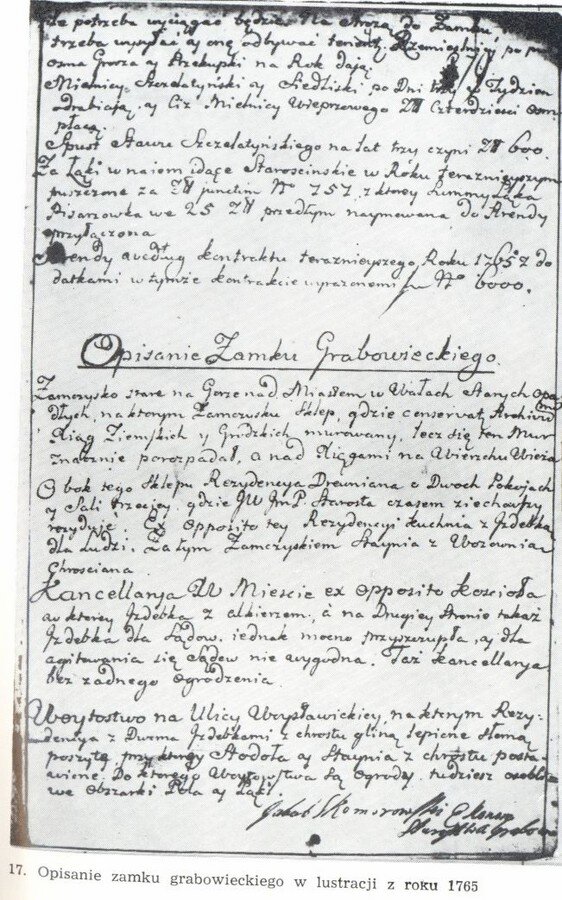 że potrzeba wyciągać będzie. Na Stróżą do Zamku,
trzeba wysyłać y onę odbywać teniętz. Rzemieslnicy po
osma Grosza ay Przekupki na Rok dają
Mielnicy Szczelatyński ay Siedliski po Dni trzy w Tydzien
Drabiają, ay Ciz Mielnicy Wieprzowego Zł Czterdziesci osm
płacą.
Spust Stawu Szczelatyńskiego na lat trzy czyni Zł 600.
Za Łąki w naiom idące Starościnskie w Roku teraznieyszym
puszczone za Zł junctim N° 757, z ktorey Summy Łąka
Pisarzowka we 25 Zł przedtym naymowana do Arendy
przyłączona
Arendy według kontraktu teraznieyszego Roku 1765 z do
datkami w tymże kontrakcie wyrazonemi N° 6000.
Opisanie Zamku Grabowieckiego.
Zamczysko stare na Gorze nad Miastem w Wałach Starych opa
dłych, na ktorym Zamczysku Sklep, gdzie conservat Archivu
Xiąg Ziemskich y Grodzkich murowany, lecz się ten Mur
znacznie porozpadał, a nad Xięgami na Wierzchu Wieża
Obok tego Sklepu Rezydencya Drewniana o Dwoch Pokojach
ay Sali trzeciey, gdzie JW JmP. Starosta czasem ziechawszy
rezyduie. Ex opposito tey Rezydencyi kuchnia z Izdebką
dla Ludzi. Za tym Zamczyskiem Staynia z Wozownia
Chrosciana.
Kancellarya W Miescie ex opposito Kościoła
w ktorey Izdebka z alkierzem, a na Drugiey Stronie takaż
Izdebka dla Sądow, iednak mocno przyszczupła, ay dla
agitowania się Sądow nie wygodna. Taż Kancellarya
bez zadnego Ogrodzenia
Woytostwo na Ulicy Woysławickiey, na ktorym Rezy-
dencya z Dwoma Izdebkami z chrostu gliną lepione słomą
poszyte, przy ktorey Stodoła ay Staynia z chrostu posta-
wione. Do ktorego Woytowstwa są Ogrody, tudziesz osobli
we Obszarki Pola ay Łąki.
Jakub Komorowski
17. Opisanie zamku grabowieckiego w lustracji z roku 1765